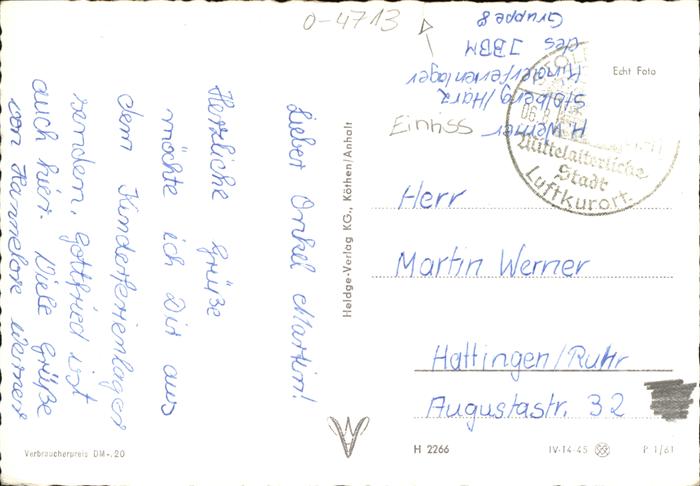 0-4713
Lieber Onkel Martin!
Herzliche Grüße
möchte ich Dir aus
dem Kinderferienlager
senden. Gottfried ist
auch hier. Viele Grüße
von Hannelore Werner
H. Werner
Stolberg/Harz
Kinderferienlager
des JBBM
Gruppe 8
Einriss
Echt Foto
06.8
Mittelalterliche
Stadt
Luftkurort
Herr
Martin Werner
Hattingen/Ruhr
Augustastr. 32
Heldge-Verlag KG., Köthen/Anhalt
Verbraucherpreis DM -.20
H 2266
IV-14-45
P 1/61